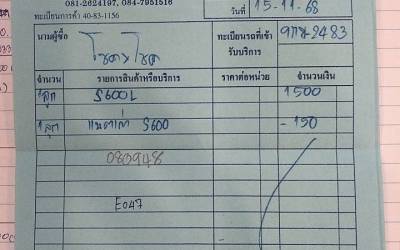 081-2624197, 084-7951516
ทะเบียนการค้า 40-83-1156
วันที่ 15-11-68
นามผู้ซื้อ โชควรโชค
ทะเบียนรถที่เข้ารับบริการ 2483
จำนวน รายการสินค้าหรือบริการ ราคาต่อหน่วย จำนวนเงิน
1 ลูก S600L 1500
1 ลูก แบตเก่า S600 -150
083948
E047